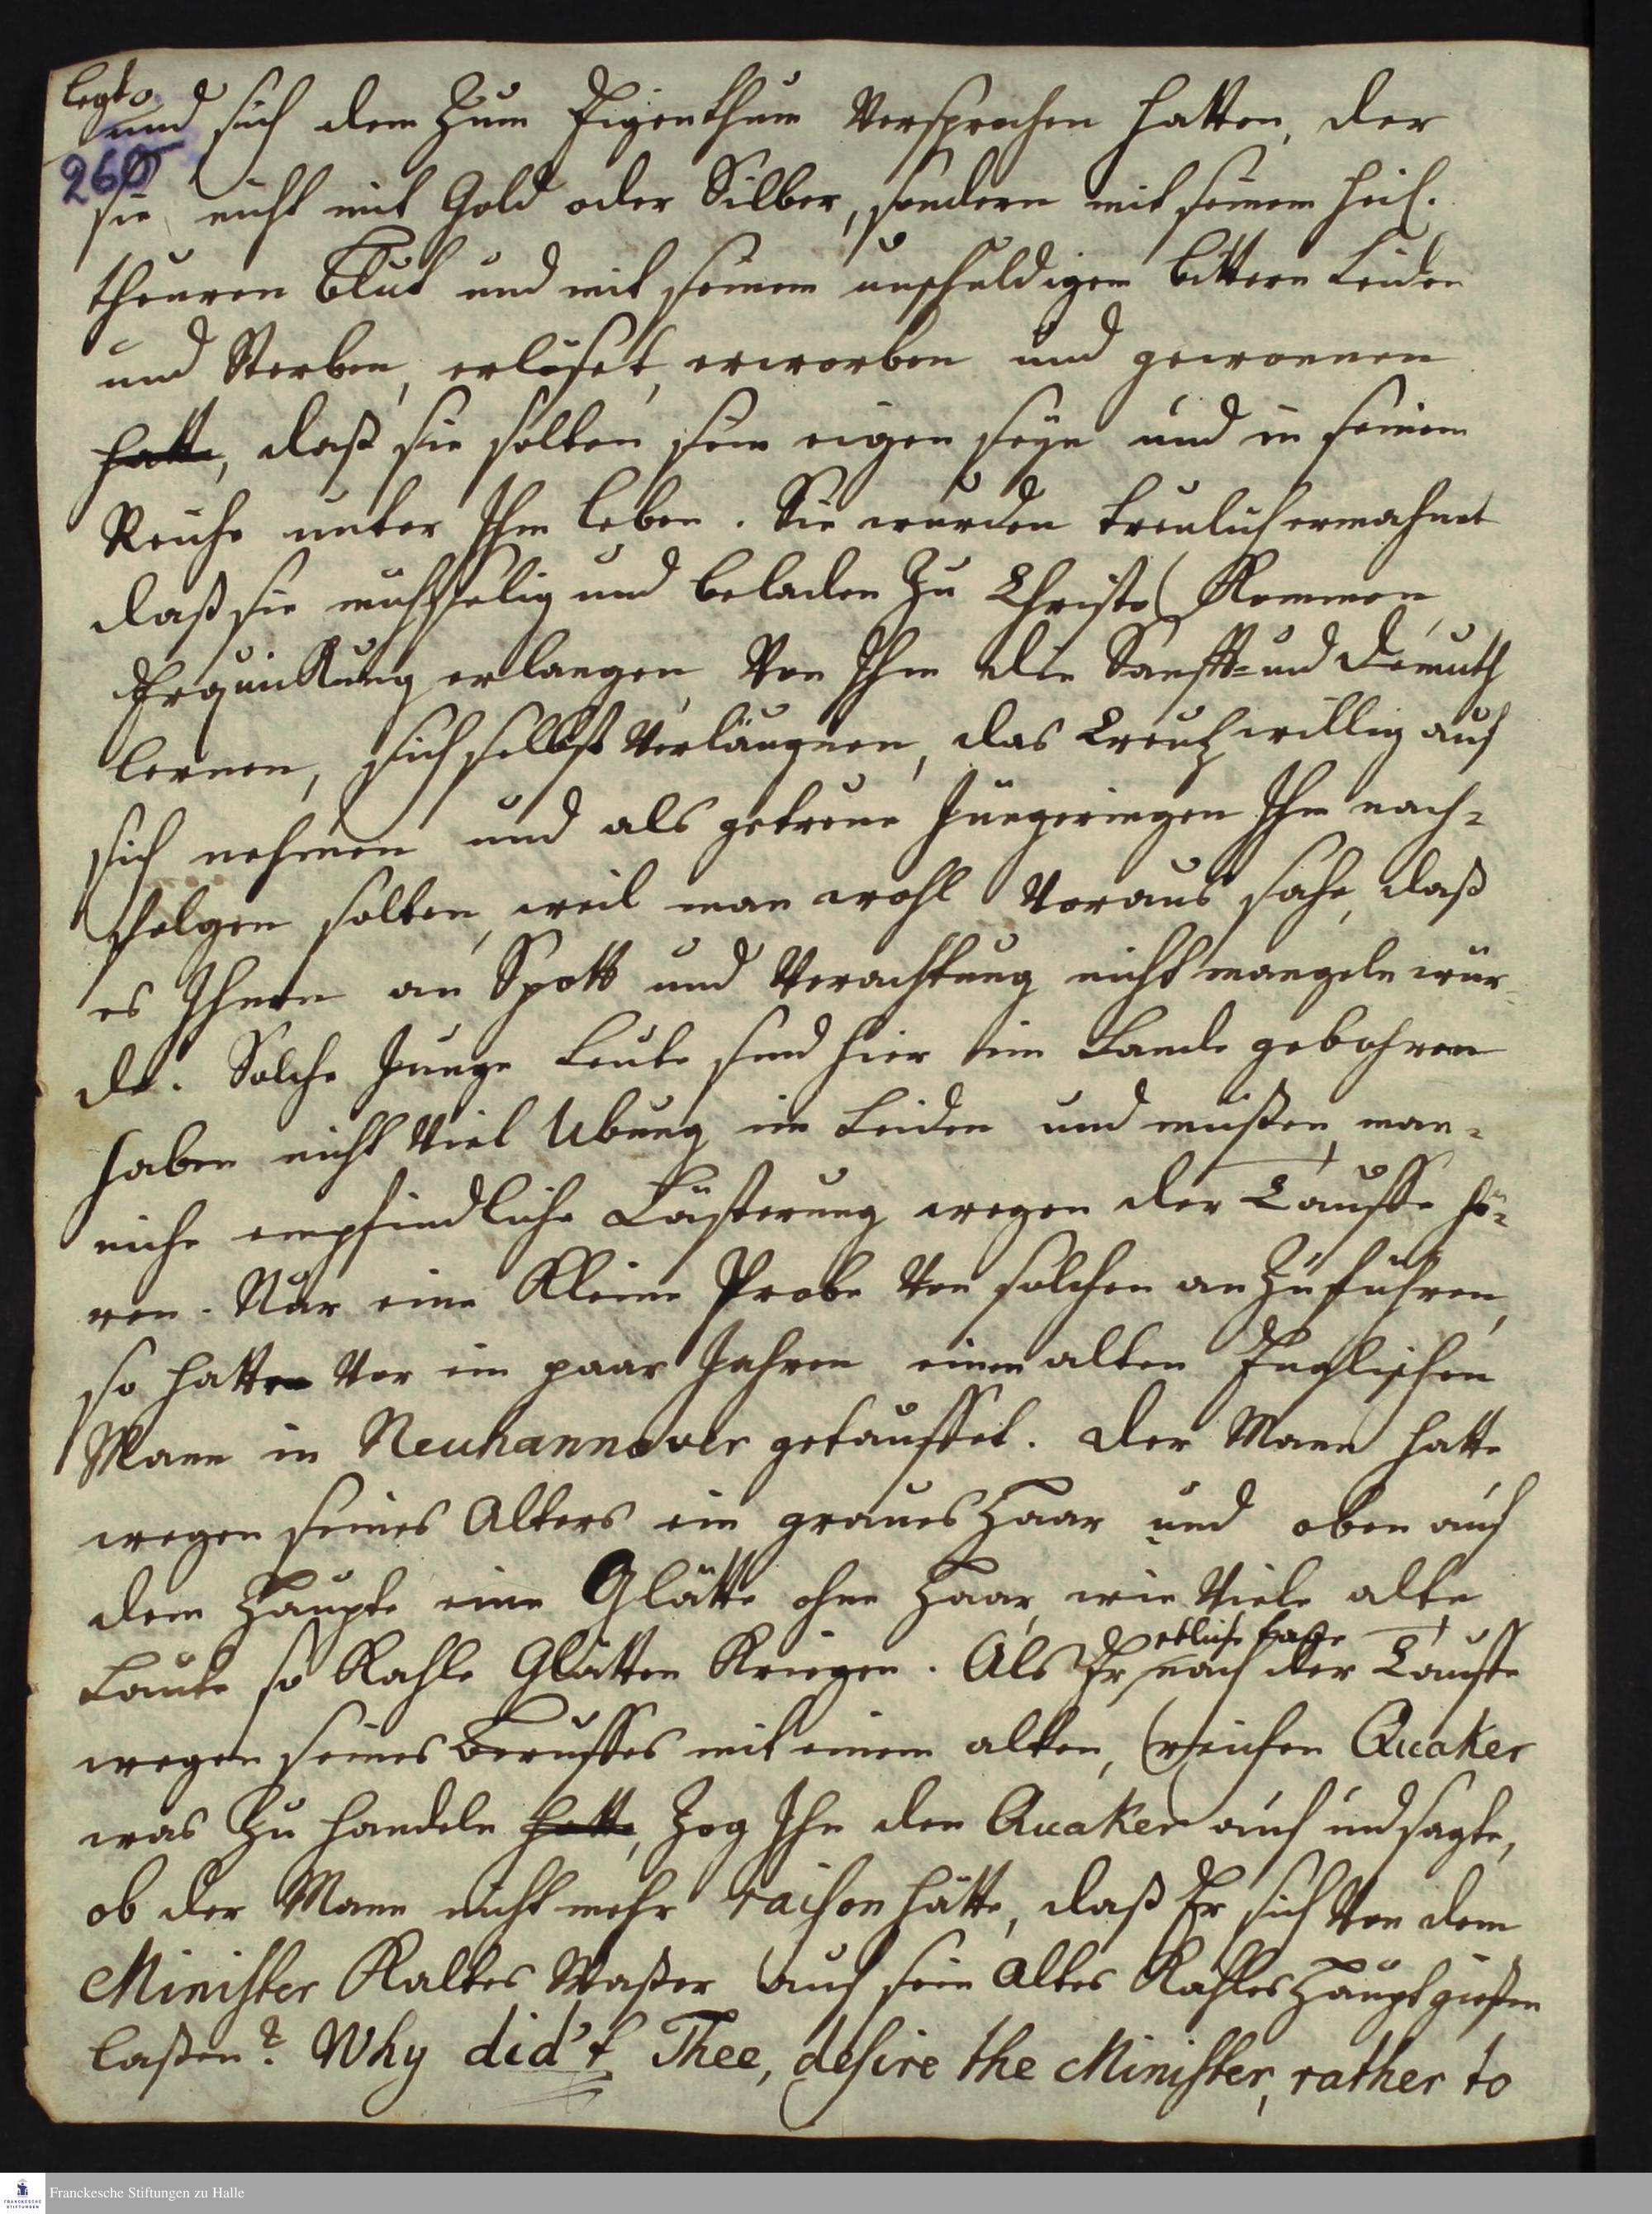 legto.
260
und sich dem zum Eigenthum versprochen hatten, der
sie nicht mit Gold oder Silber, sondern mit seinem heil.
theuren Blut und mit seinem unschuldigen bittern Leiden
und Sterben, erlöset, erworben und gewonnen
hatte, daß sie solten sein eigen seyn und in seinem
Reiche unter Ihm leben. Sie wurden treulich ermahnet
daß sie muhsselig und beladen zu Christo kommen,
Erquickung erlangen, von Ihm die Sanfft- und Demuth
lernen, sich selbst verläugnen, das Creutz willig auf
sich nehmen und als getreue Jüngeringen Ihm nach-
folgen solten, weil man wohl voraus sahe, daß
es Ihnen an Spott und Verachtung nicht mangeln wür-
de. Solche junge Leute sind hier im Lande gebohren
haben nicht viel Ubung im Leiden und müßen man-
niche empfindliche Lästerung wegen der Tauffe hö-
ren. Nur eine kleine Probe von solchen anzuführen,
so hatten vor ein paar Jahren einen alten Englischen
Mann in Neuhannover getauffet. Der Mann hatte
wegen seines Alters ein graues Haar und oben auf
dem Haupte eine Glätte ohne Haar, wie viele alte
Leute so kahle Glätten kriegen. Als Er etliche Tage nach der Tauffe
wegen seines Beruffes mit einem alten, reichen Quaker
was zu handeln hatte, zog Ihn der Quaker auf und sagte,
ob der Mann nicht mehr raison hätte, daß Er sich von dem
Minister kaltes Waßer auf sein altes kahles Haupt gießen
laßen? Why did't Thee, desire the Minister, rather to
Franckesche Stiftungen zu Halle